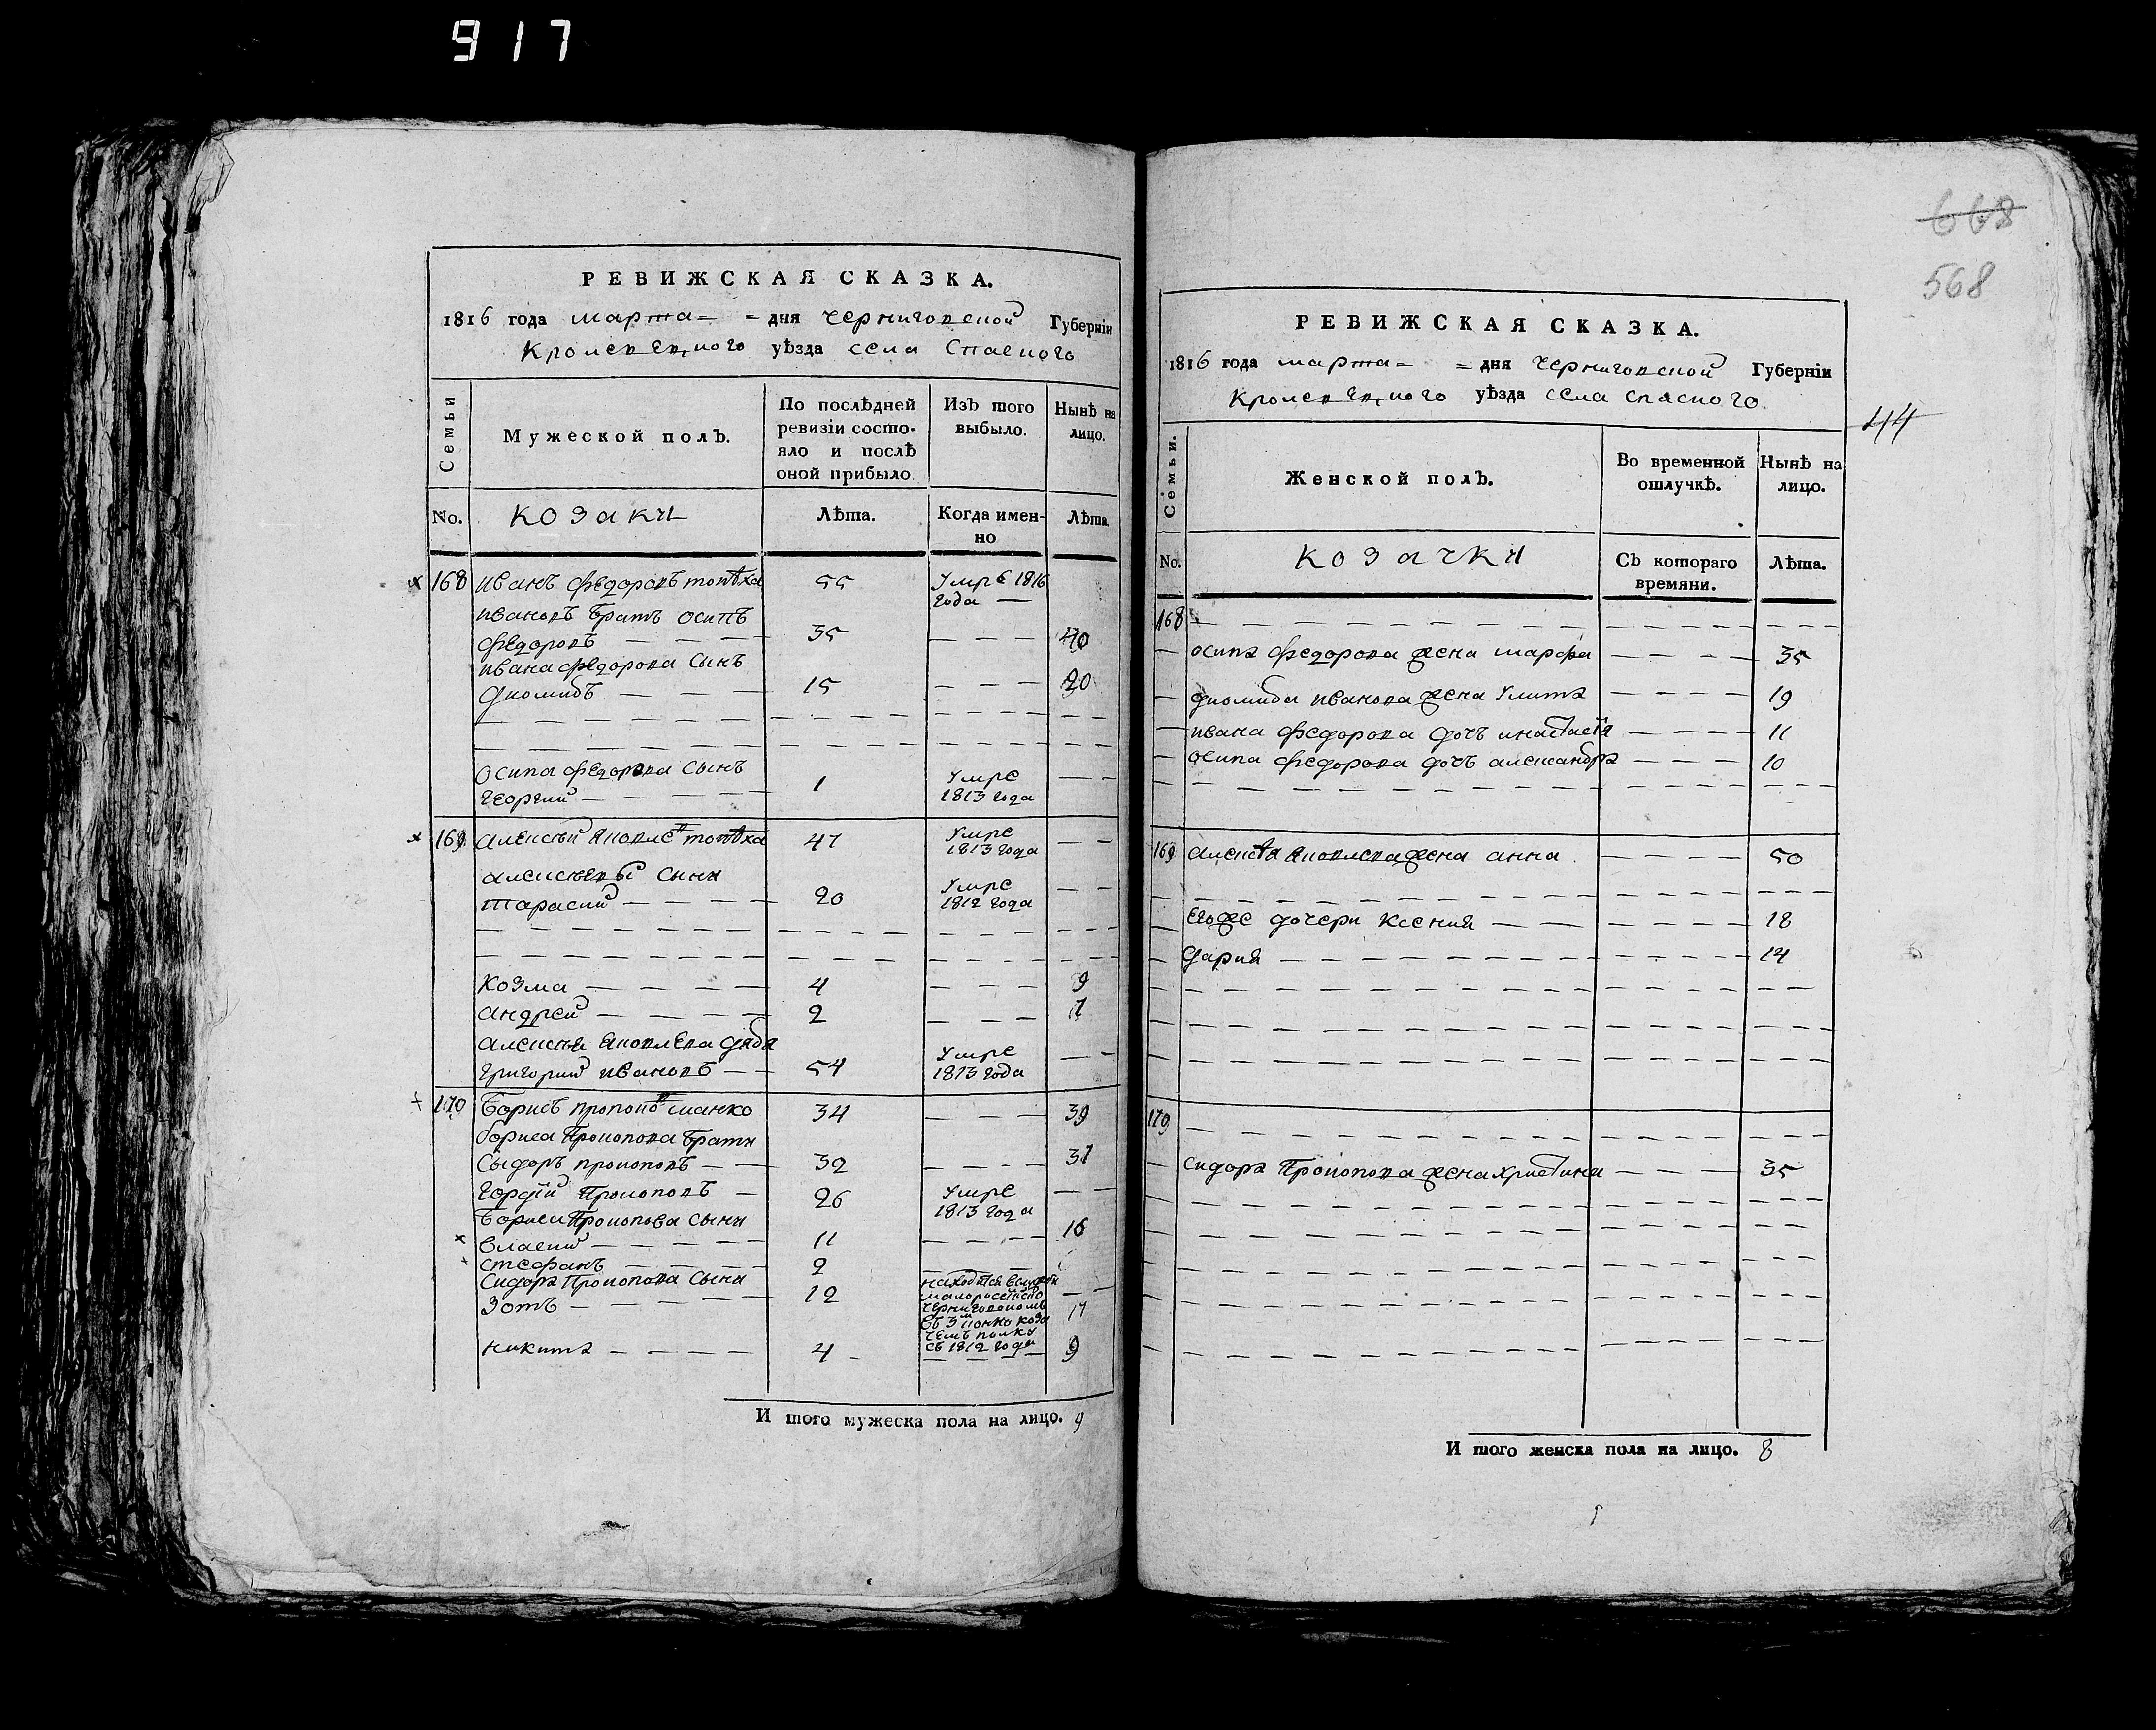 917
РЕВИЖСКАЯ СКАЗКА.
1816 года марта = = дня Черниговской Губерніи
Кролевецкого уѣзда села Спаского
Семьи
Мужеской полъ.
По послѣдней ревизіи состояло и послѣ оной прибыло.
Изъ того выбыло.
Нынѣ на лицо.
No. козаки Лѣта. Когда именно Лѣта.
168 иванъ федоровъ 55 умре 1816 года —
ивановъ братъ осипъ
федоровъ — — — 35 — — — 40
ивана федорова сынъ
диомидъ — — — 15 — — — 20
осипа федорова сынъ
георгий — — — 1 умре 1813 года — —
169 алексѣй яковле 47 умре 1813 года — —
алексѣевы сыни
тарасий — — — 20 умре 1812 года — —
козма — — — 4 — — — 9
андрей — — — 2 — — — 7
алексѣя яковлева дядя
григорий ивановъ — — 54 умре 1813 года — —
170 борисъ прокопо 34 — — — 39
бориса прокопова брати
сыдоръ прокоповъ — — 32 — — — 37
гордѣй прокоповъ — 26 умре 1813 года — —
бориса прокопова сыни
власий — — — 11 — — — 16
стефанъ — — — 2 — — —
сидора прокопова сыни
зотъ — — — 12 находится
черниговскомъ
въ 3м
полку
съ 1812 года 17
никита — — — 4 — — — — 9
И того мужеска пола на лицо. 9
668
568
РЕВИЖСКАЯ СКАЗКА.
1816 года марта = = дня Черниговской Губерніи
Кролевецкого уѣзда села спаского.
44
Семьи.
Женской полъ.
Во временной отлучкѣ.
Нынѣ на лицо.
No. козачки Съ котораго времяни. Лѣта.
168 — — —
осипа федорова жена марфа — — — — 35
диомида иванова жена улита — — — — 19
ивана федорова дочъ анастасія — — — — 11
осипа федорова дочъ александра — — — 10
169 алексѣя яковлева жена анна — — — — 50
его же дочери ксения — — — — — — 18
дария — — — 14
170 — — —
сидора прокопова жена христина — — — 35
И того женска пола на лицо. 8